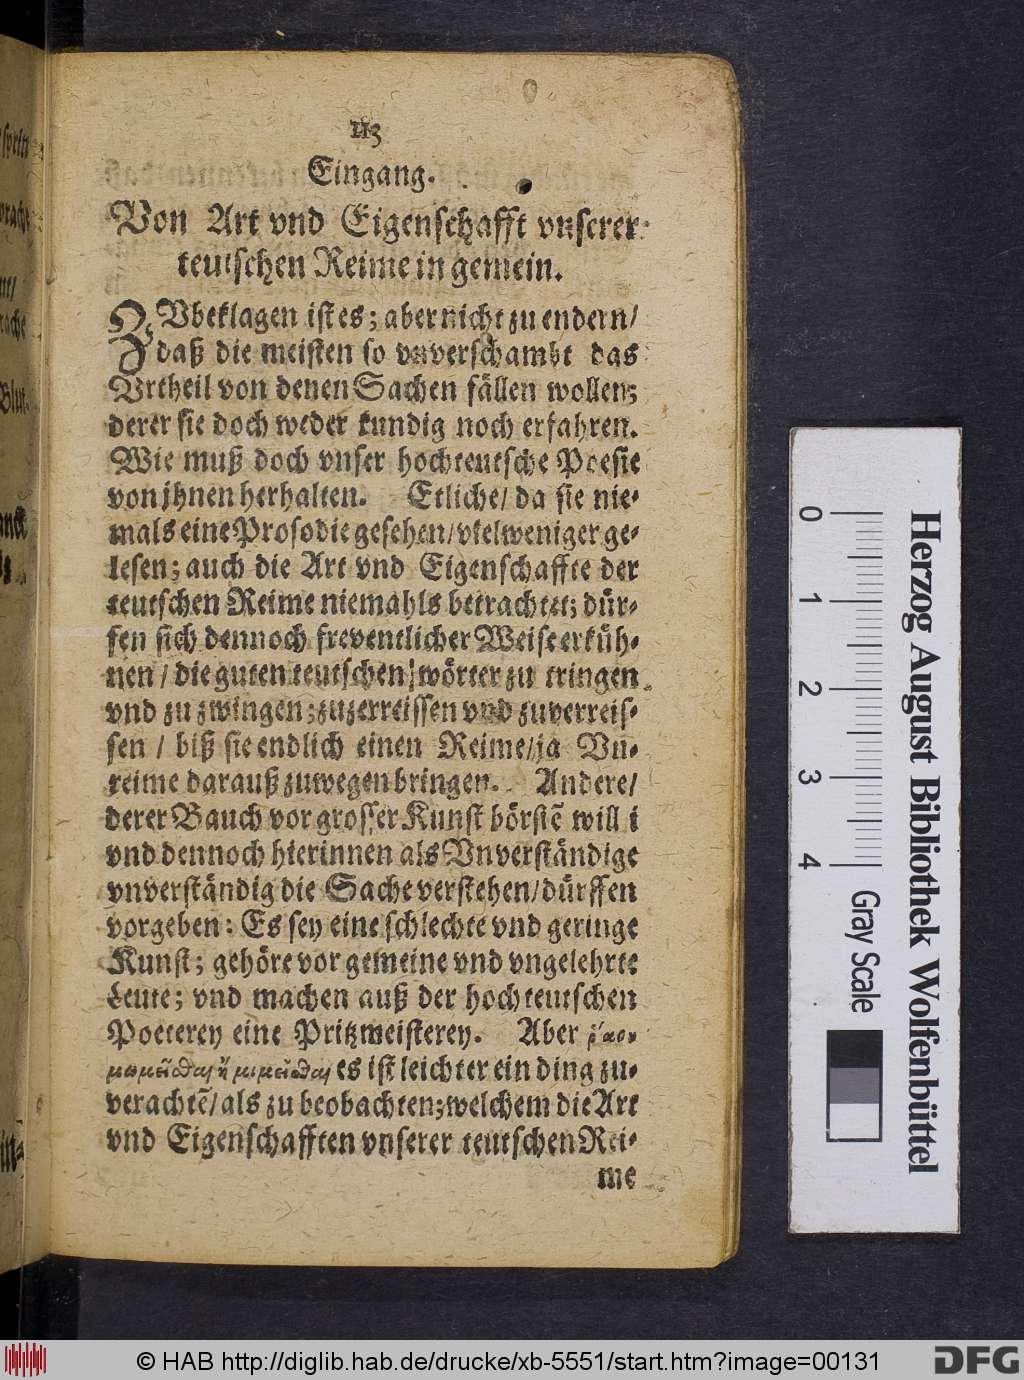 113
Eingang.
Von Art vnd Eigenschafft vnserer
teutschen Reime in gemein.
ZVbeklagen ist es; aber nicht zu endern/
daß die meisten so vnverschambt das
Vrtheil von denen Sachen fällen wollen;
derer sie doch weder kundig noch erfahren.
Wie muß doch vnser hochteutsche Poesie
von jhnen herhalten. Etliche/ da sie nie-
mals eine Prosodie gesehen/ vielweniger ge-
lesen; auch die Art vnd Eigenschaffte der
teutschen Reime niemahls betrachtet; dür-
fen sich dennoch freventlicher Weise erküh-
nen / die guten teutschen wörter zu tringen
vnd zu zwingen; zuzerreissen vnd zuverreis-
sen / biß sie endlich einen Reime/ ja Vn-
reime darauß zuwegen bringen. Andere/
derer Bauch vor grosser Kunst börstē will
vnd dennoch hierinnen als Vnverständige
vnverständig die Sache verstehen/ dürffen
vorgeben: Es sey eine schlechte vnd geringe
Kunst; gehöre vor gemeine vnd vngelehrte
Leute; vnd machen auß der hochteutschen
Poeterey eine Pritzmeisterey. Aber ῥᾷον
μωμεῖσθαι ἢ μιμεῖσθαι es ist leichter ein ding zu-
verachtē/ als zu beobachten; welchem die Art
vnd Eigenschafften vnserer teutschen Rei-
me
Herzog August Bibliothek Wolfenbüttel
0 1 2 3 4 Gray Scale
© HAB http://diglib.hab.de/drucke/xb-5551/start.htm?image=00131
DFG